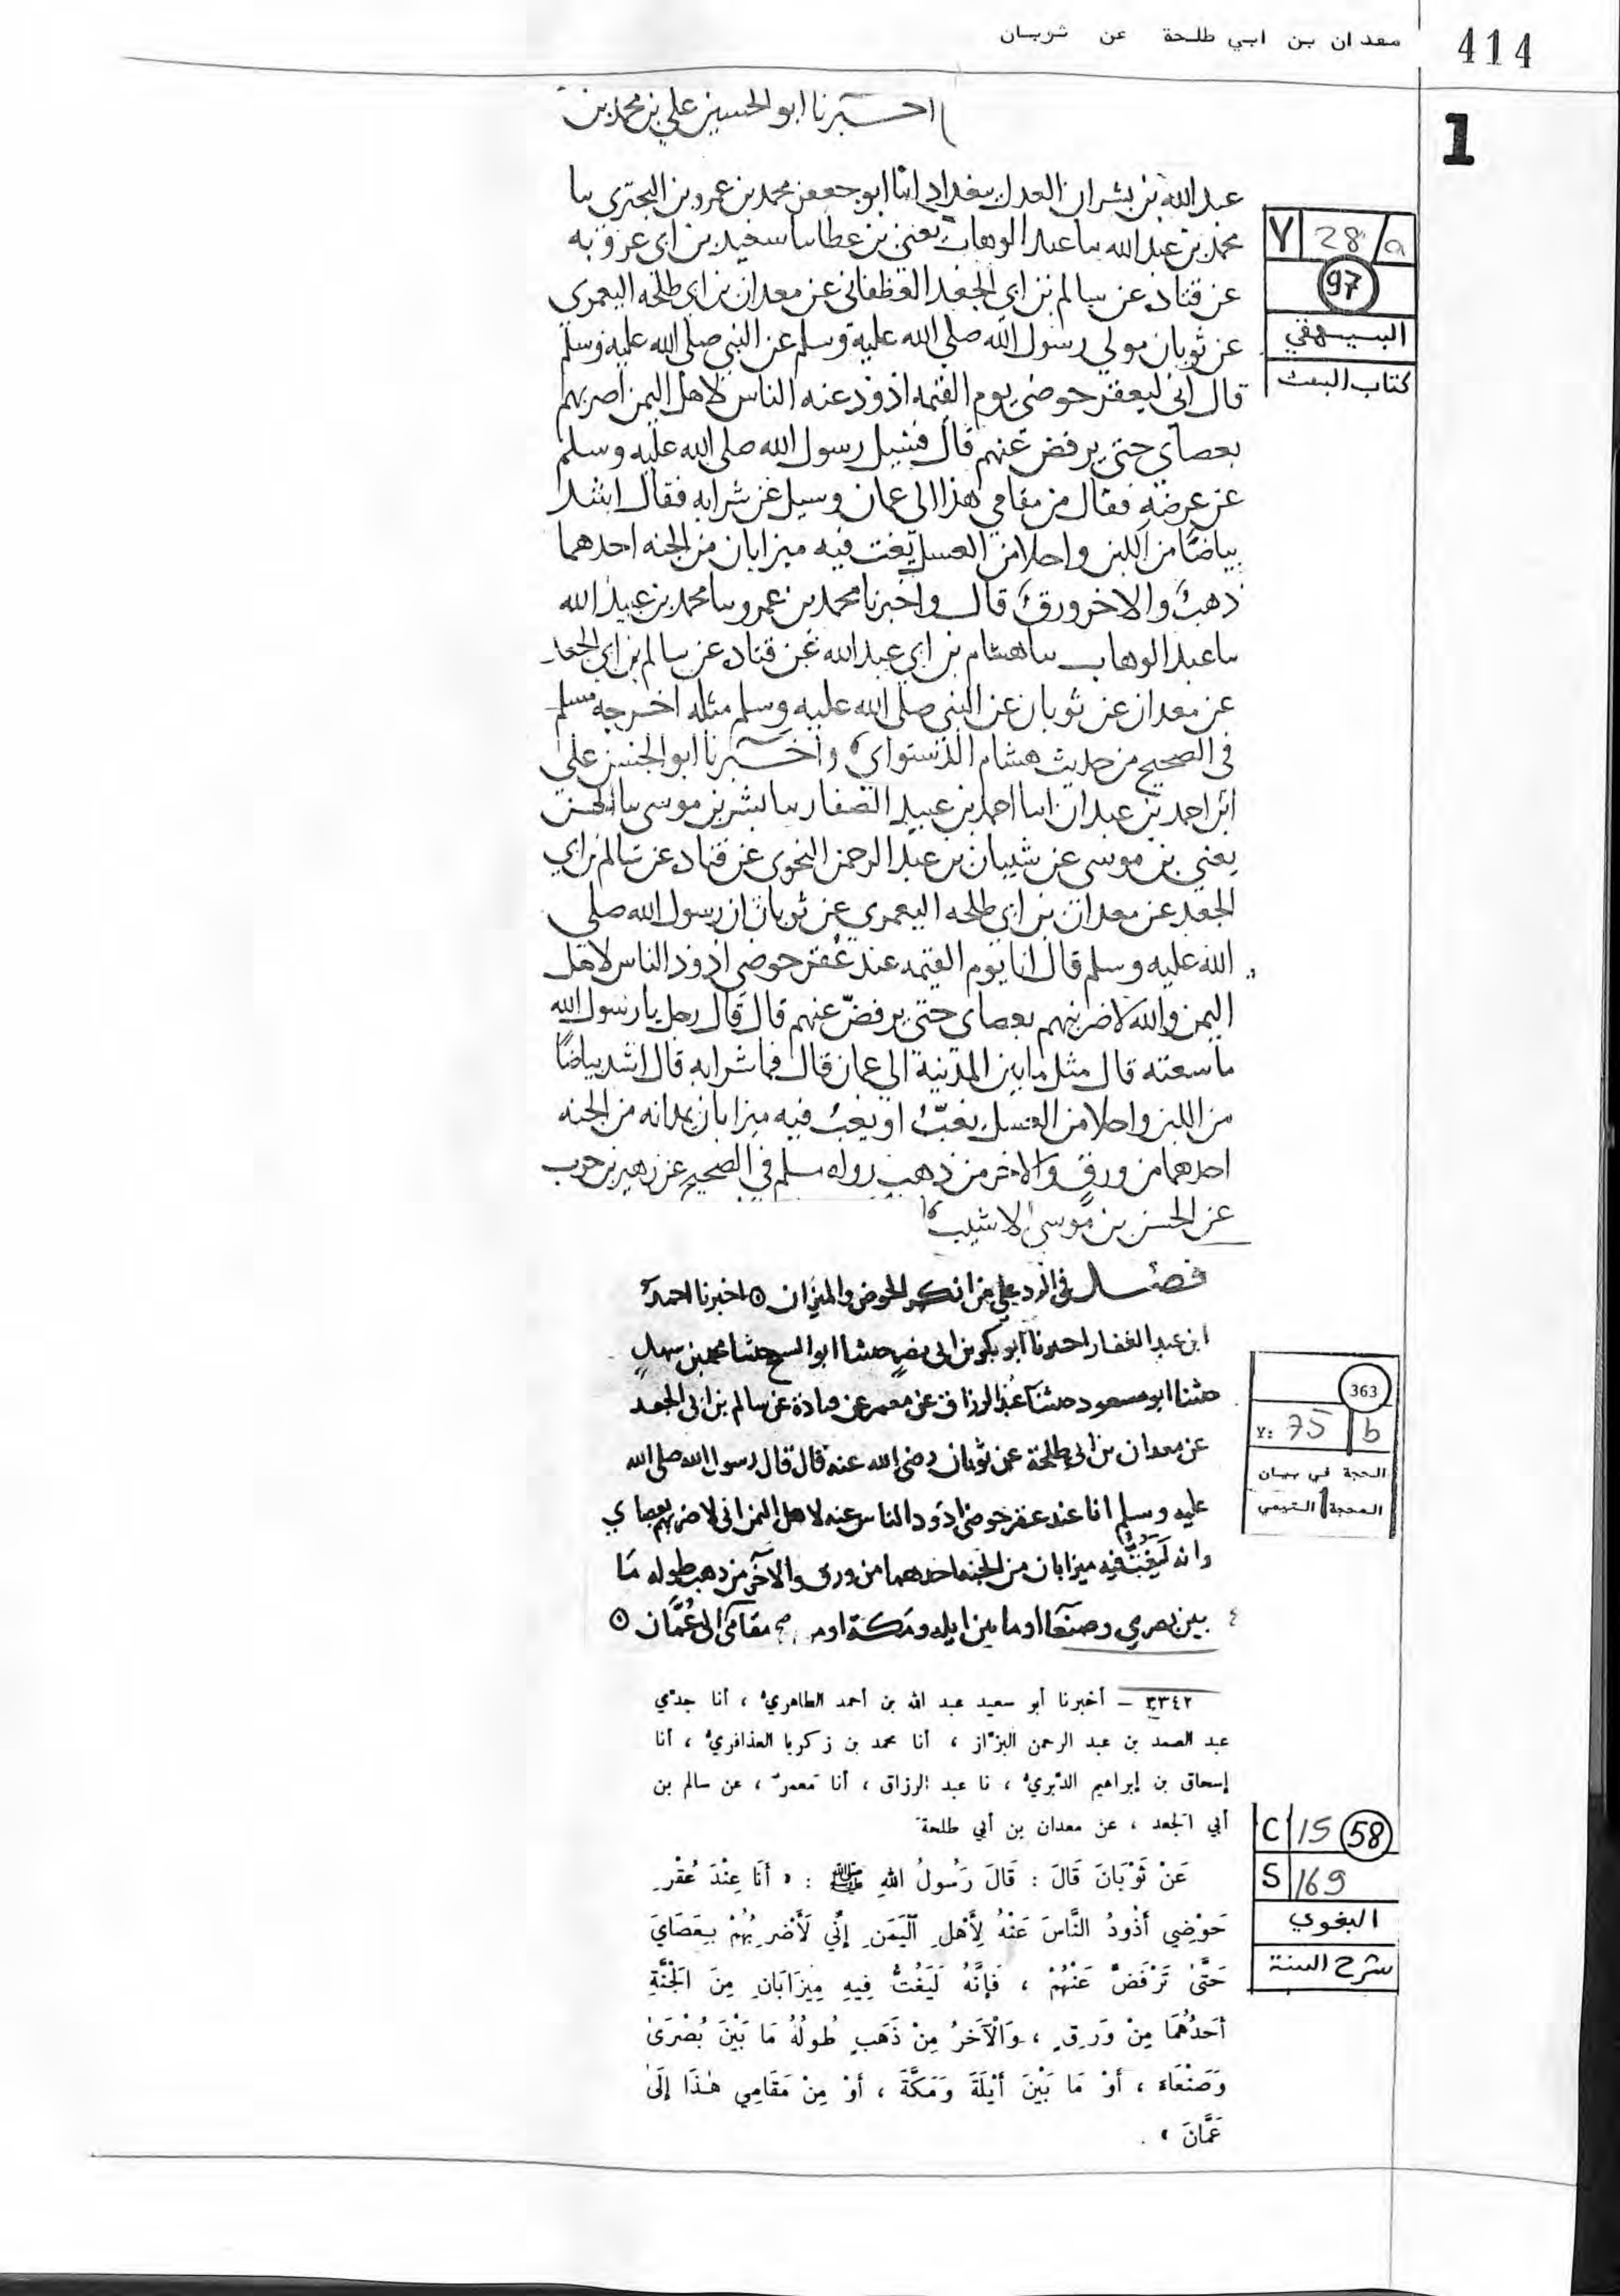 414
معدان بن ابي طلحة عن ثوبان
1
اخبرنا ابو الحسين علي بن محمد بن
عبد الله بن بشران العدل ببغداد انا ابو جعفر محمد بن عمرو بن البختري نا
محمد بن عبد الله نا عبد الوهاب يعني بن عطا نا سعيد بن ابي عروبه
عن قتاده عن سالم بن ابي الجعد الغطفاني عن معدان بن ابي طلحه اليعمري
عن ثوبان مولي رسول الله صلي الله عليه وسلم عن النبي صلي الله عليه وسلم
قال اني لبعقر حوضي يوم القيمه اذود عنه الناس لاهل اليمن اضربهم
بعصاي حتي يرفض عنهم قال فسيل رسول الله صلي الله عليه وسلم
عن عرضه فقال من مقامي هذا الي عمان وسيل عن شرابه فقال اشد
بياضًا من اللبن واحلا من العسل يغت فيه ميزابان من الجنه احدهما
ذهب والاخر ورق قال واخبرنا محمد بن عمرو نا محمد بن عبيد الله
نا عبد الوهاب نا هشام بن ابي عبد الله عن قتاده عن سالم بن ابي الجعد
عن معدان عن ثوبان عن النبي صلي الله عليه وسلم مثله اخرجه مسلم
في الصحيح من حديث هشام الدستواي واخبرنا ابو الحسن علي
ابن احمد بن عبدان انا احمد بن عبيد الصفار نا بشر بن موسي نا الحسن
يعني بن موسي عن شيبان بن عبد الرحمن النحوي عن قتاده عن سالم بن ابي
الجعد عن معدان بن ابي طلحه اليعمري عن ثوبان ان رسول الله صلي
الله عليه وسلم قال انا يوم القيمه عند عُقر حوضي اذود الناس لاهل
اليمن والله لاضربنهم بعصاي حتي يرفضّ عنهم قال قال رجل يا رسول الله
ما سعته قال مثل ما بين المدينة الي عمان قال فما شرابه قال اشد بياضًا
من اللبن واحلا من العسل يغتّ او يعب فيه ميزابان يمدانه من الجنه
احدهما من ورق والاخر من ذهب رواه مسلم في الصحيح عن زهير بن حرب
عن الحسن بن موسي الاشيب
Y 28 /a
97
البيهقي
كتاب البعث
فصل في الرد علي من انكر الحوض والميزان ⊙ اخبرنا احمد
ابن عبد الغفار اخبرنا ابو بكر بن ابي نصر حدثنا ابو الشيخ حدثنا محمد بن سهل
حدثنا ابو مسعود حدثنا عبد الرزاق عن معمر عن قتادة عن سالم بن ابي الجعد
عن معدان بن ابي طلحة عن ثوبان رضي الله عنه قال قال رسول الله صلي الله
عليه وسلم انا عند عقر حوضي اذود الناس عنه لاهل اليمن اني لاضربهم بعصاي
وانه ليغت فيه ميزابان من الجنه احدهما من ورق والآخر من ذهب طوله ما
بين بصري وصنعآ او ما بين ايله ومكة او من مقامي الي عُمَّان ⊙
363
Y: 75 b
الحجة في بيان
المحجة التيمي
٣٣٤٢ – أخبرنا أبو سعيد عبد الله بن أحمد الطاهريُّ ، أنا جدّي
عبد الصمد بن عبد الرحمن البزّاز ، أنا محمد بن زكريا العذافريُّ ، أنا
إسحاق بن إبراهيم الدَّبريُّ ، نا عبد الرزاق ، أنا مَعمرٌ ، عن سالم بن
أبي الجعد ، عن معدان بن أبي طلحةَ
عَنْ ثَوْبَانَ قَالَ : قَالَ رَسُولُ اللهِ ﷺ : « أَنَا عِنْدَ عُقْرِ
حَوْضِي أَذُودُ النَّاسَ عَنْهُ لِأَهْلِ الْيَمَنِ إِنِّي لَأَضْرِبُهُمْ بِعَصَايَ
حَتَّى تَرْفَضَّ عَنْهُمْ ، فَإِنَّهُ لَيَغُتُّ فِيهِ مِيزَابَانِ مِنَ الْجَنَّةِ
أَحَدُهُمَا مِنْ وَرِقٍ ، وَالْآخَرُ مِنْ ذَهَبٍ طُولُهُ مَا بَيْنَ بُصْرَى
وَصَنْعَاءَ ، أَوْ مَا بَيْنَ أَيْلَةَ وَمَكَّةَ ، أَوْ مِنْ مَقَامِي هٰذَا إِلَى
عَمَّانَ » .
C 15 58
S 169
البغوي
شرح السنة